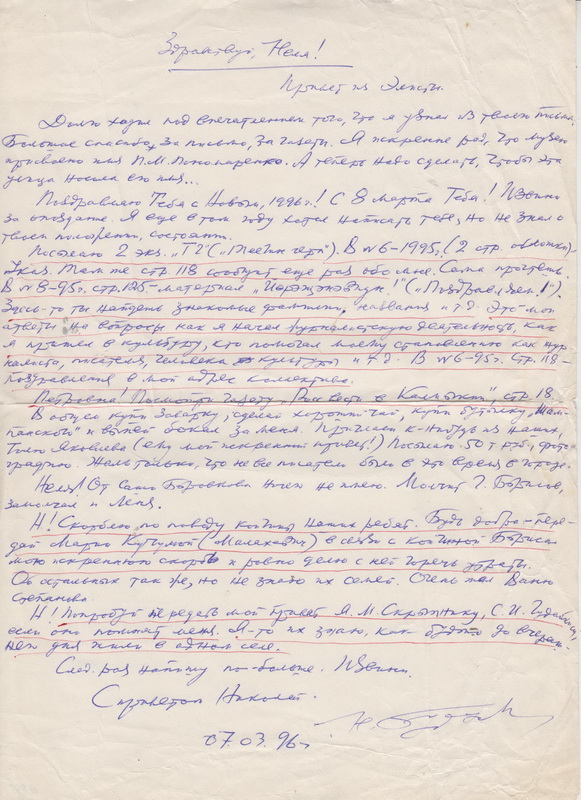 Здравствуй, Неля!
Привет из Элисты.
Долго ходил под впечатлением того, что я узнал из твоего письма.
Большое спасибо за письмо, за газеты. Я искренне рад, что музею
присвоено имя П.М. Пономаренко. А теперь надо сделать, чтобы эта
улица носила его имя...
Поздравляю Тебя с Новым, 1996 г.! С 8 марта Тебя! Извини
за опоздание. Я еще в том году хотел написать тебе, но не знал о
твоем положении, состоянии.
Посылаю 2 экз. „ТГ" („Теегин герл"). В №6-1995, (2 стр. обложки)
Указ. Там же стр. 118 сообщает еще раз обо мне. Сама прочтешь.
В №8-95 г. стр. 125 - материал („Поздравляем!").
Здесь-то ты найдешь знакомые фамилии, названия и т.д. Это мои
ответы на вопросы как я начал журналистскую деятельность, как
я пришел в культуру, кто помогал моему становлению как жур-
налиста, писателя, человека культуры и т.д. В №6-95 г. стр. 118 -
поздравления в мой адрес коллектива.
Петровна! Посмотри газету „в Калмыкии", стр. 18.
В общем купи заварку, сделай хороший чай, купи бутылку „Шам-
панского" и выпей бокал за меня. Пригласи к-нибудь из наших,
Толю Яковлева (ему мой искренний привет!) Посылаю 50 т. руб., фото-
графию. Жаль только, что не все писатели были в это время в городе.
Неля! От Саши Боровкова ничего не имею. Молчит Г. Борисов,
замолчал и Лёня.
Н! Скорблю по поводу кончины наших ребят. Будь добра - пере-
дай Марии Кучумой (Малехаевой) в связи с кончиной Бориса
мою искреннюю скорбь и ровно делю с ней горечь утраты.
Об остальных так же, но не знаю их семей. Очень жал Ваню
Степанова.
Н! Попробуй передать мой привет Я.М. Скрыпнику, С.И.
если они помнят меня. Я-то их знаю, как будто до вчераш-
него дня жили в одном селе.
След. раз напишу по-больше. Извини.
С приветом Николай.
07.03.96 г.